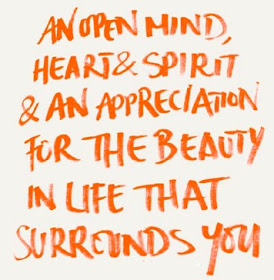 AN OPEN MIND,
HEART & SPIRIT
& AN APPRECIATION
FOR THE BEAUTY
IN LIFE THAT
SURROUNDS YOU